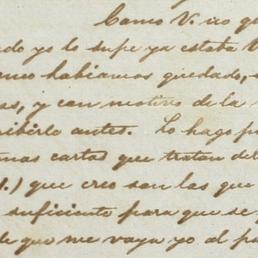 Como V. no qu
do yo lo supe ya estaba V
habiamos quedado,
as, y con motivo de la
ribirle antes. Lo hago p
mas cartas que tratan del
1.) que creo son las que
suficiente para que se
de que me vaya yo al pa